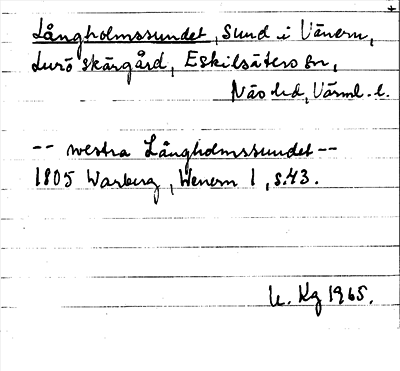 Långholmssundet, Sund i Vänern,
Lurö skärgård, Eskilsäters sn,
Näs hd, Värml. l.
-- westra Långholmssundet --
1805 Warberg, Wenern 1, s.43.
U. Kg 1965.